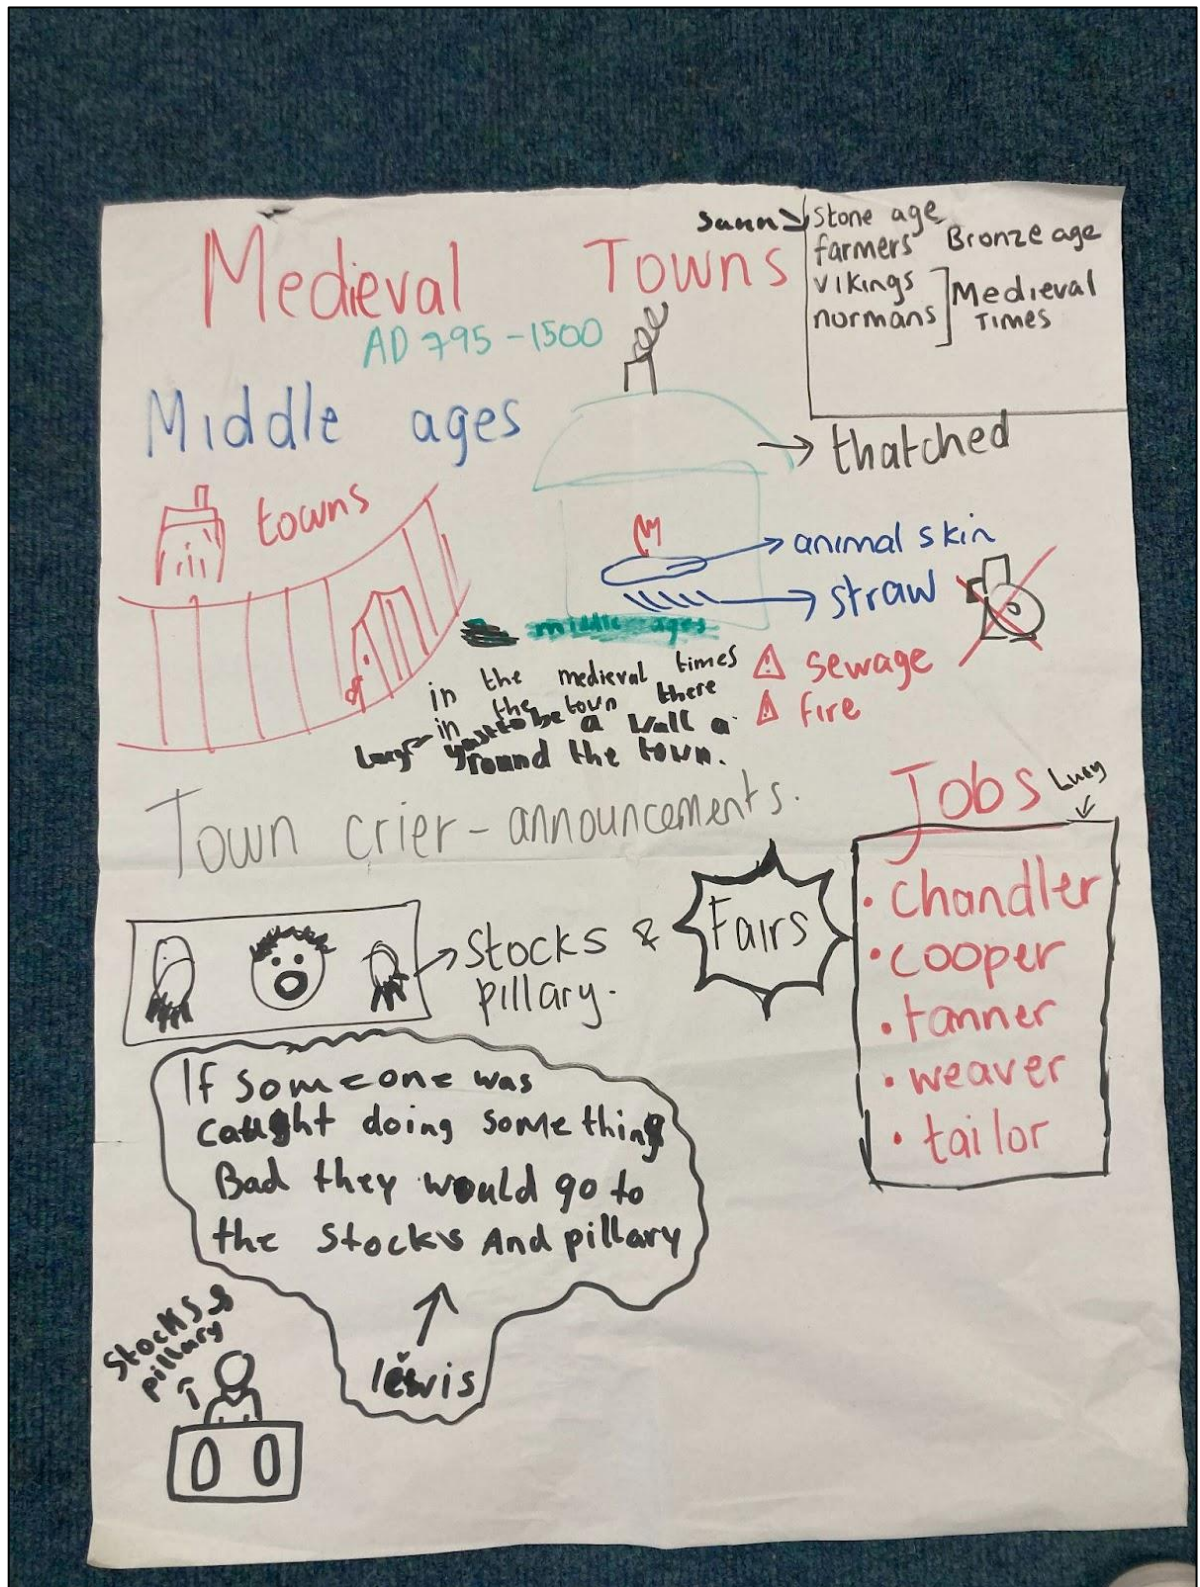 Medieval Towns
AD 795-1500
Stone age
farmers Bronze age
vikings
normans
Medieval
Times
Middle ages
thatched
towns
animal skin
straw
middle ages
sewage
fire
in the medieval times
in the town there
to be a wall a
round the town.
Town crier - announcements.
Jobs
Lucy
• chandler
• cooper
• tanner
• weaver
• tailor
Stocks &
pillary.
Fairs
If someone was
caught doing something
Bad they would go to
the Stocks And pillary
lewis
Stocks &
pillary